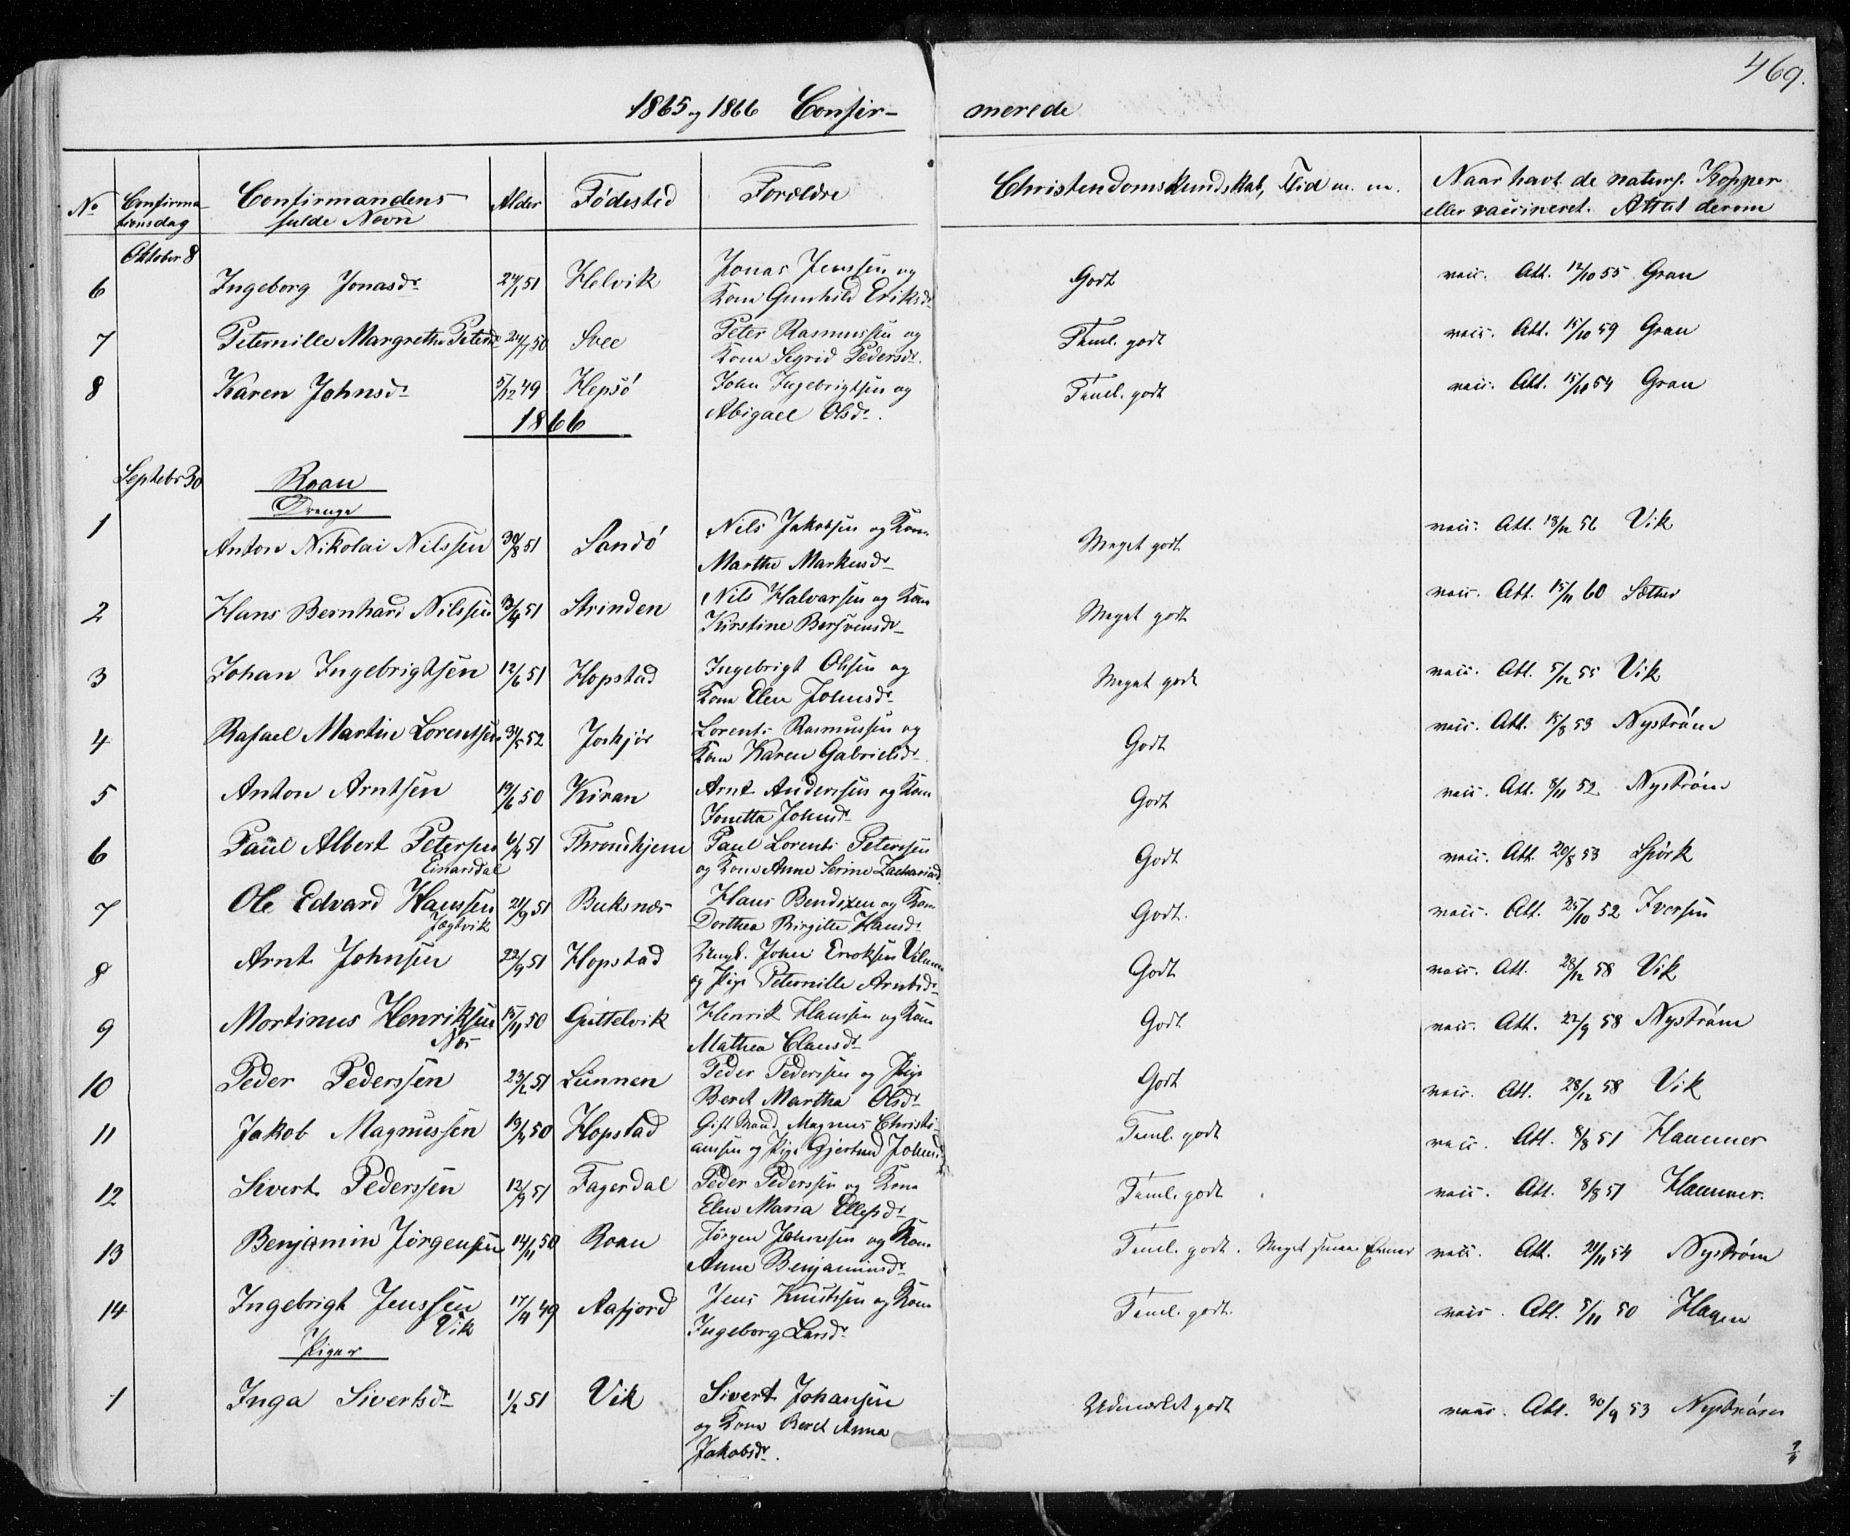 469.
1865 og 1866 Confir- merede
No Confirma tionsdag Confirmandens fulde Navn Alder Fødested Forældre Christendomskundskab, Flid m. m. Naar havt de naturl. Kopper eller vaccineret. Attest derom
Oktober 8
6 Ingeborg Jonasdr 24/1 51 Helvik Jonas Jenssen og Kone Gunhild Eriksdr Godt vacc. Att. 12/10 55 Gran
7 Peternille Margrethe Petersdr 24/7 50 Peter Rasmussen og Kone Sigrid Pedersdr. Teml. godt vacc. Att. 15/10 59 Gran
8 Karen Johnsdr 5/12 49 Hepsø John Ingebrigtsen og Abigael Olsdr. Teml. godt vacc. Att. 15/10 54 Gran
1866
Septebr 30 Roan
Drenge
1 Anton Nikolai Nilssen 30/8 51 Sandø Nils Jakobsen og Kone Martha Markusdr Meget godt vacc. Att. 18/12 56 Vik
2 Hans Bernhard Nilssen 3/4 51 Strinden Nils Halvarsen og Kone Kirstine Bersvensdr Meget godt vacc. Att. 15/11 60 Sæther
3 Johan Ingebrigtsen 12/6 51 Hopstad Ingebrigt Olsen og Kone Elen Johnsdr Meget godt vacc. Att. 5/12 55 Vik
4 Rafael Martin Lorentsen 31/5 52 Lorents Rasmussen og Kone Karen Gabrielsdr Godt vacc. Att. 15/8 53 Nystrøm
5 Anton Arntsen 19/6 50 Kiran Arnt Anderssen og Kone Jonetta Johnsdr Godt vacc. Att. 8/11 52 Nystrøm
6 Paul Albert Peterssen Einarsdal 6/4 51 Throndhjem Paul Lorents Peterssen og Kone Anne Serine Zachariasd. Godt vacc. Att. 20/8 53 Spørk
7 Ole Edvard Hanssen Jægtvik 21/9 51 Buksnæs Hans Bendixen og Kone Dorthea Birgitte Hansdr Godt. vacc. Att. 25/10 52 Iversen
8 Arnt Johnsen 22/9 51 Hopstad Ungk. John Eriksen og Pige Peternille Arntsdr Godt vacc. Att. 28/12 58 Vik
9 Mortinus Henriksen Næs 15/11 50 Guttelvik Henrik Hansen og Kone Mathea Clausdr Godt vacc. Att. 22/9 58 Nystrøm
10 Peder Pederssen 23/2 51 Sunnen Peder Pederssen og Pige Beret Martha Olsdr Godt vacc. Att. 28/12 58 Vik
11 Jakob Magnussen 19/4 50 Hopstad Gift Mand Magnus Christi- anssen og Pige Gjertrud Johnsdr Teml. godt vacc. Att. 8/8 51 Hammer
12 Sivert Pederssen 12/9 51 Fagerdal Peder Pederssen og Kone Elen Maria Ellefsdr Teml. godt vacc. Att. 8/8 51 Hammer.
13 Benjamin Jørgensen 14/11 50 Roan Jørgen Johnsen og Kone Anne Benjaminsdr Teml. godt. Meget smaa Evner vacc. Att. 21/11 54 Nystrøm
14 Ingebrigt Jenssen Vik 17/4 49 Aafjord Jens Knutssen og Kone Ingeborg Larsdr Teml. godt. vacc. Att. 5/11 50 Hagen
Piger
1 Inga Sivertsdr 1/2 51 Vik Sivert Johansen og Kone Beret Anna Jakobsdr. Udmerket godt vacc. Att. 30/9 53 Nystrøm